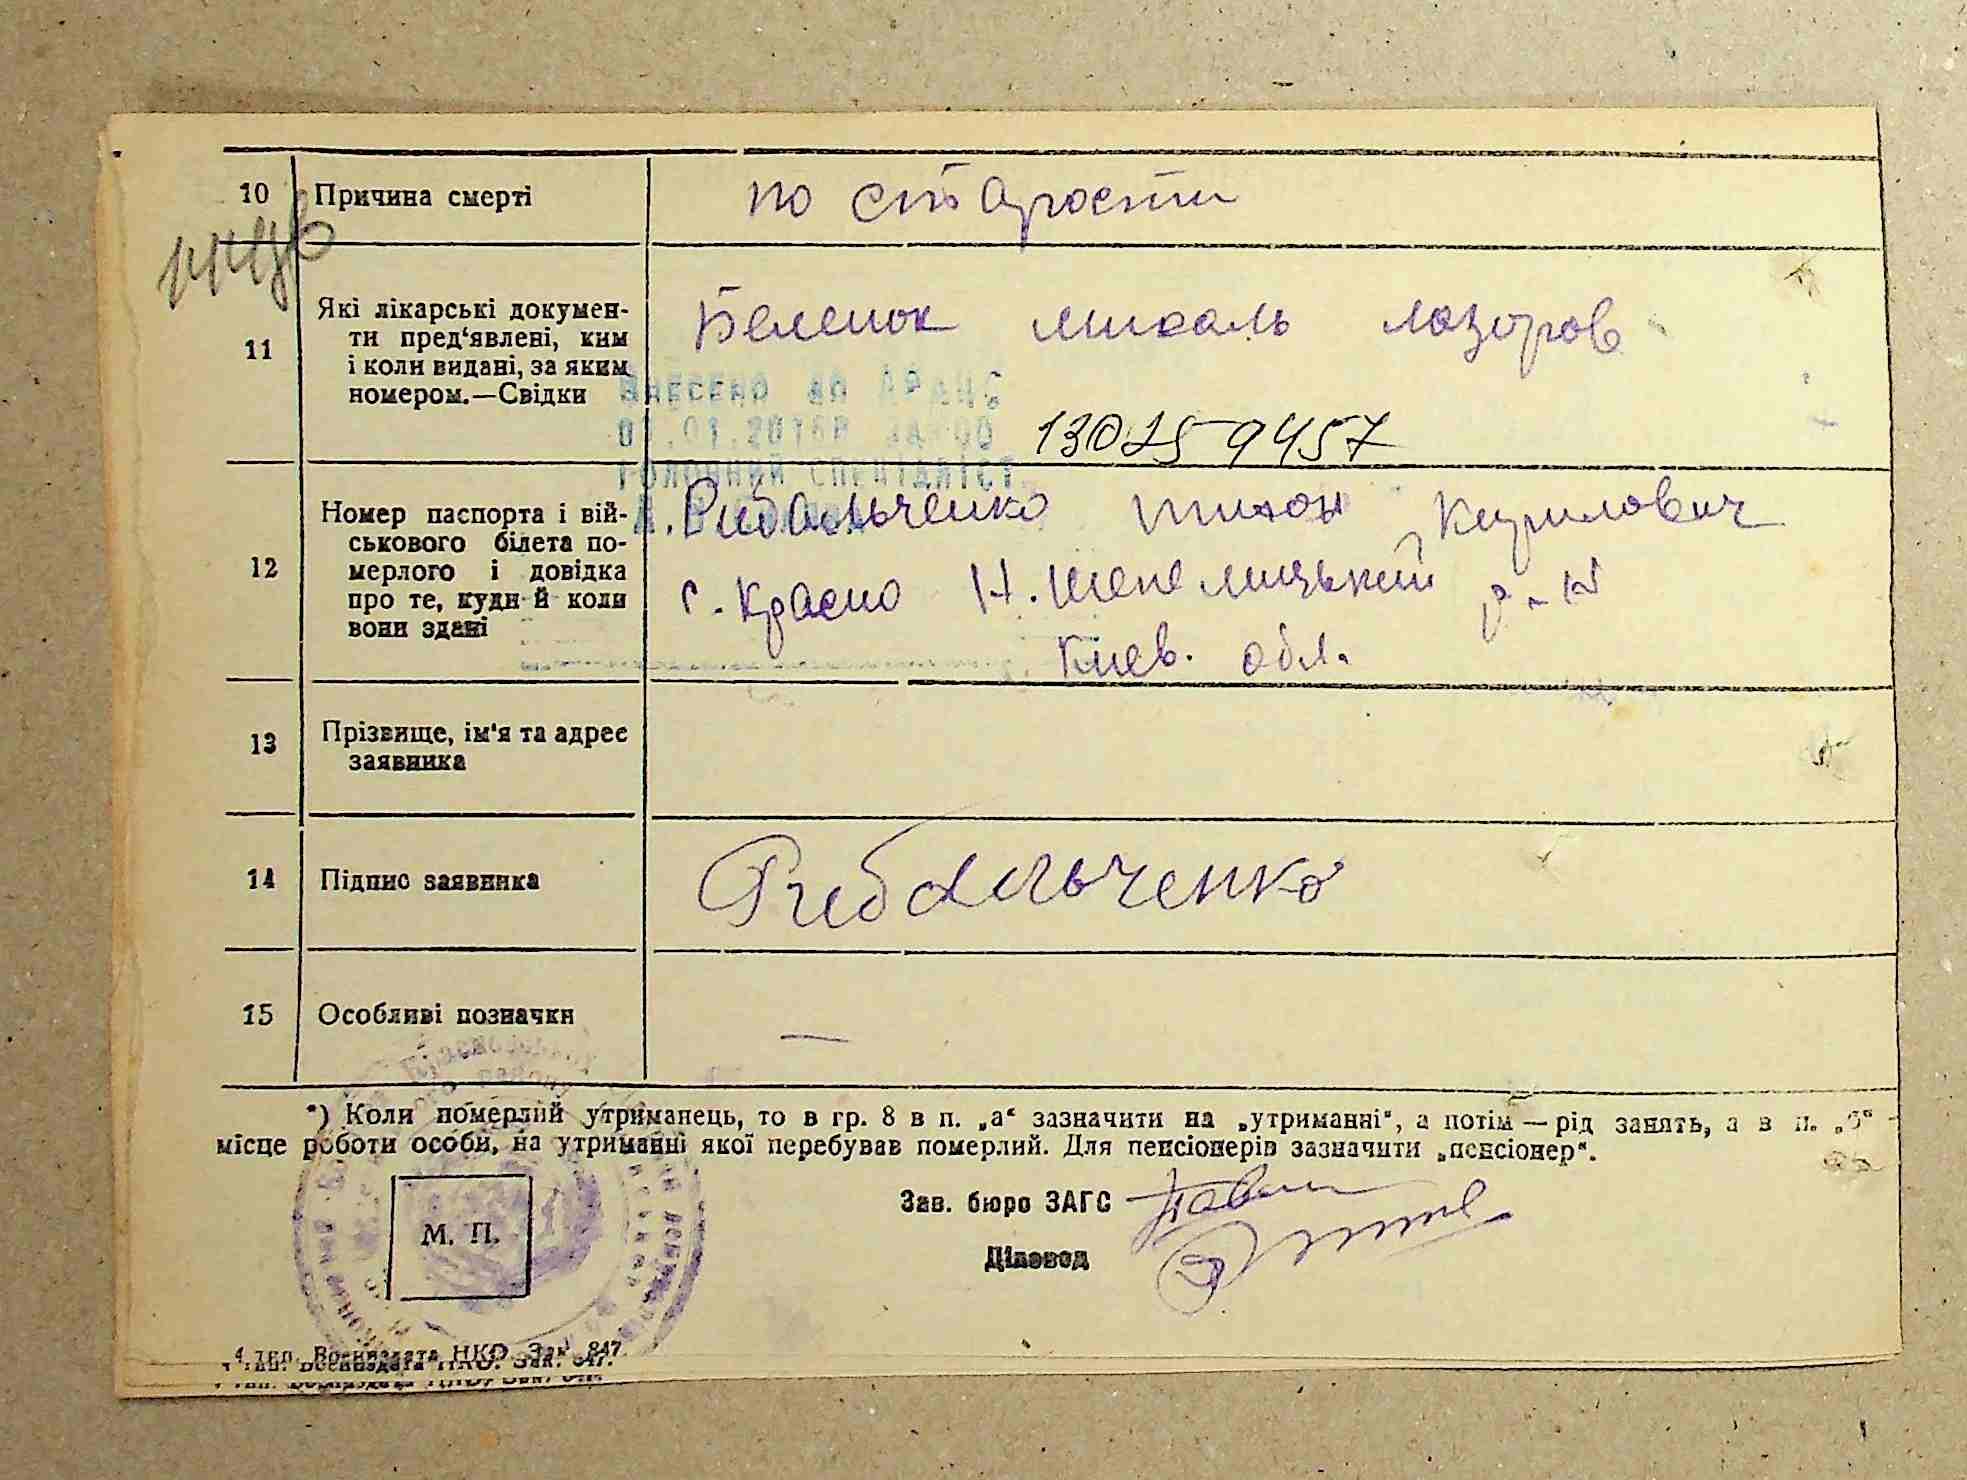 10 Причина смерті
по старости
11 Які лікарські докумен-
ти пред'явлені, ким
і коли видані, за яким
номером.—Свідки
Беленок михаль лазоров
Внесено до ДРАЦС
ГОЛОВНИЙ СПЕЦІАЛІСТ
13025 9457
12 Номер паспорта і вій-
ськового білета по-
мерлого і довідка
про те, куди й коли
вони здані
Рибальченко тихон Кирилович
с. Красно Н. Шепелицький р-н
Киев. обл.
13 Прізвище, ім'я та адрес
заявника
14 Підпис заявника
Рибальченко
15 Особливі позначки
—
*) Коли померлий утриманець, то в гр. 8 в п. „а“ зазначити на „утриманні“, а потім — рід занять, а в п. „б“ -
місце роботи особи, на утриманні якої перебував померлий. Для пенсіонерів зазначити „пенсіонер“.
Зав. бюро ЗАГС
М. П.
Діловод
4 тип. Воениздата НКО. Зак. 847.